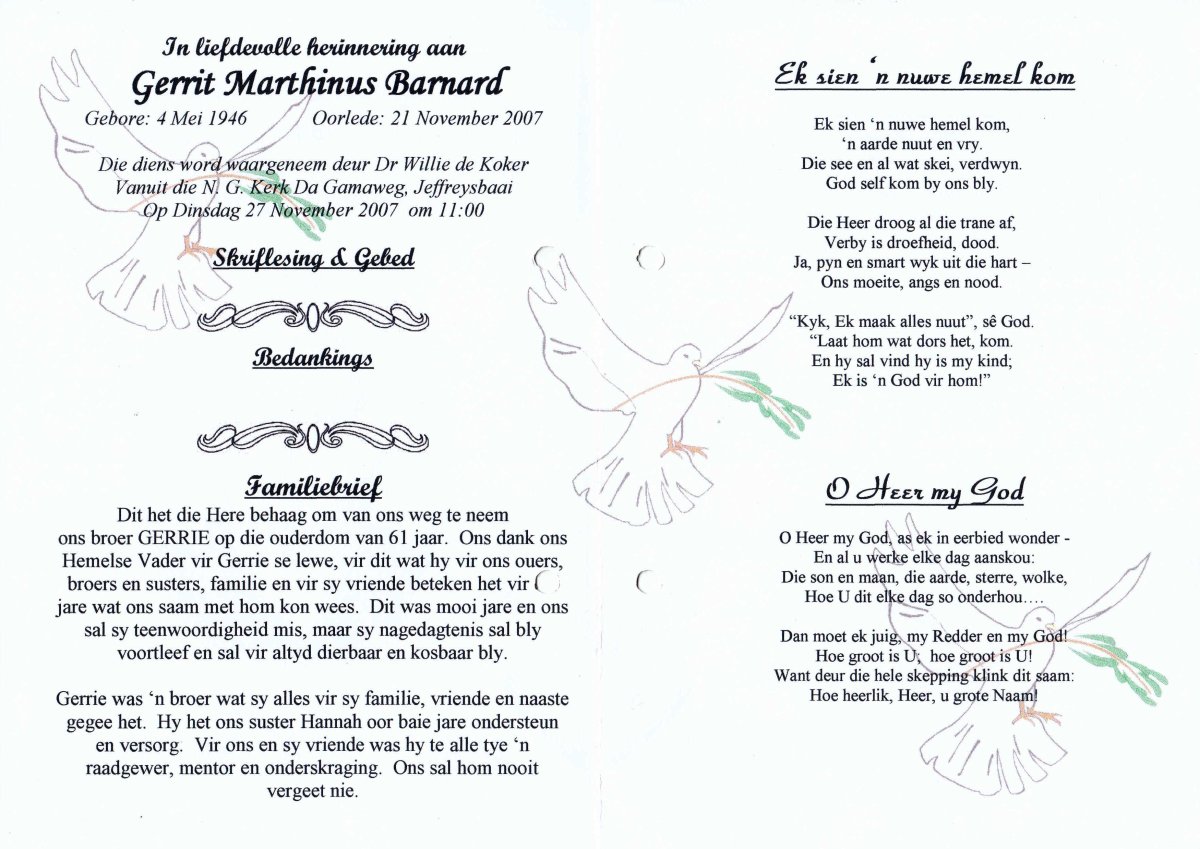 In liefdevolle herinnering aan
Gerrit Marthinus Barnard
Gebore: 4 Mei 1946 Oorlede: 21 November 2007
Die diens word waargeneem deur Dr Willie de Koker
Vanuit die N. G. Kerk Da Gamaweg, Jeffreysbaai
Op Dinsdag 27 November 2007 om 11:00
Skriflesing & Gebed
Bedankings
Familiebrief
Dit het die Here behaag om van ons weg te neem
ons broer GERRIE op die ouderdom van 61 jaar. Ons dank ons
Hemelse Vader vir Gerrie se lewe, vir dit wat hy vir ons ouers,
broers en susters, familie en vir sy vriende beteken het vir
jare wat ons saam met hom kon wees. Dit was mooi jare en ons
sal sy teenwoordigheid mis, maar sy nagedagtenis sal bly
voortleef en sal vir altyd dierbaar en kosbaar bly.
Gerrie was ‘n broer wat sy alles vir sy familie, vriende en naaste
gegee het. Hy het ons suster Hannah oor baie jare ondersteun
en versorg. Vir ons en sy vriende was hy te alle tye ‘n
raadgewer, mentor en onderskraging. Ons sal hom nooit
vergeet nie.
Ek sien ‘n nuwe hemel kom
Ek sien ‘n nuwe hemel kom,
‘n aarde nuut en vry.
Die see en al wat skei, verdwyn.
God self kom by ons bly.
Die Heer droog al die trane af,
Verby is droefheid, dood.
Ja, pyn en smart wyk uit die hart –
Ons moeite, angs en nood.
“Kyk, Ek maak alles nuut”, sê God.
“Laat hom wat dors het, kom.
En hy sal vind hy is my kind;
Ek is ‘n God vir hom!”
O Heer my God
O Heer my God, as ek in eerbied wonder -
En al u werke elke dag aanskou:
Die son en maan, die aarde, sterre, wolke,
Hoe U dit elke dag so onderhou….
Dan moet ek juig, my Redder en my God!
Hoe groot is U; hoe groot is U!
Want deur die hele skepping klink dit saam:
Hoe heerlik, Heer, u grote Naam!